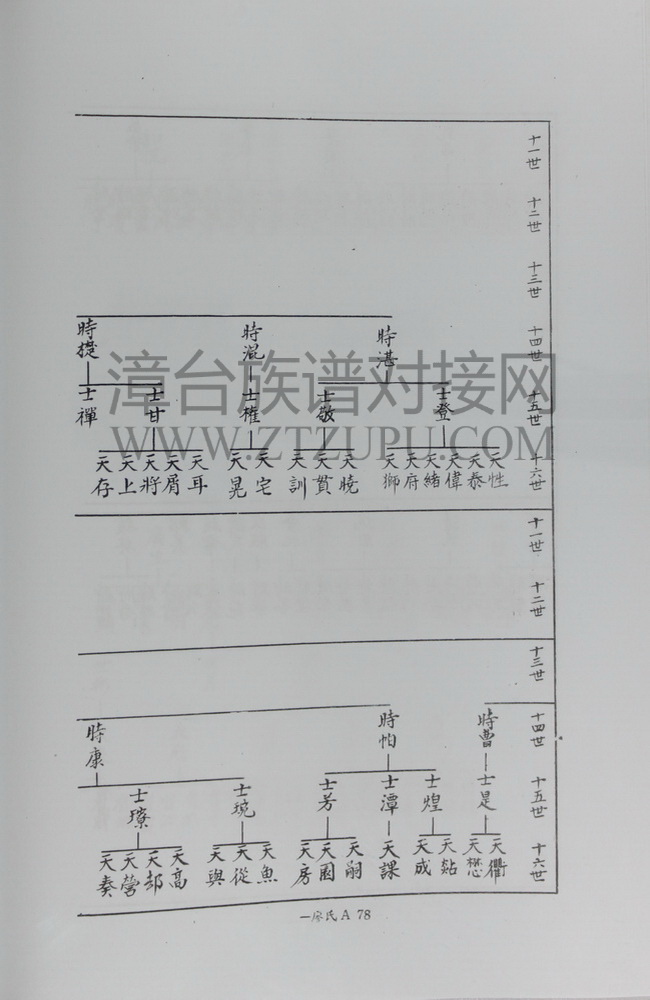 十一世 十二世 十三世 十四世 十五世 十六世
時湛 時混 時提
士登 士敬 士權 士甘 士禪
天性 天泰 天偉 天緒 天府 天獅 天曉 天貫 天訓 天宅 天晃 天耳 天屑 天將 天上 天存
漳台族谱对接网
WWW.ZTZUPU.COM
十一世 十二世 十三世 十四世 十五世 十六世
時曹 時怕 時康
士是 士煌 士潭 士芳 士琬 士璙
天衢 天懋 天點 天成 天課 天嗣 天園 天房 天魚 天從 天與 天高 天郄 天營 天奏
一廖氏 A 78